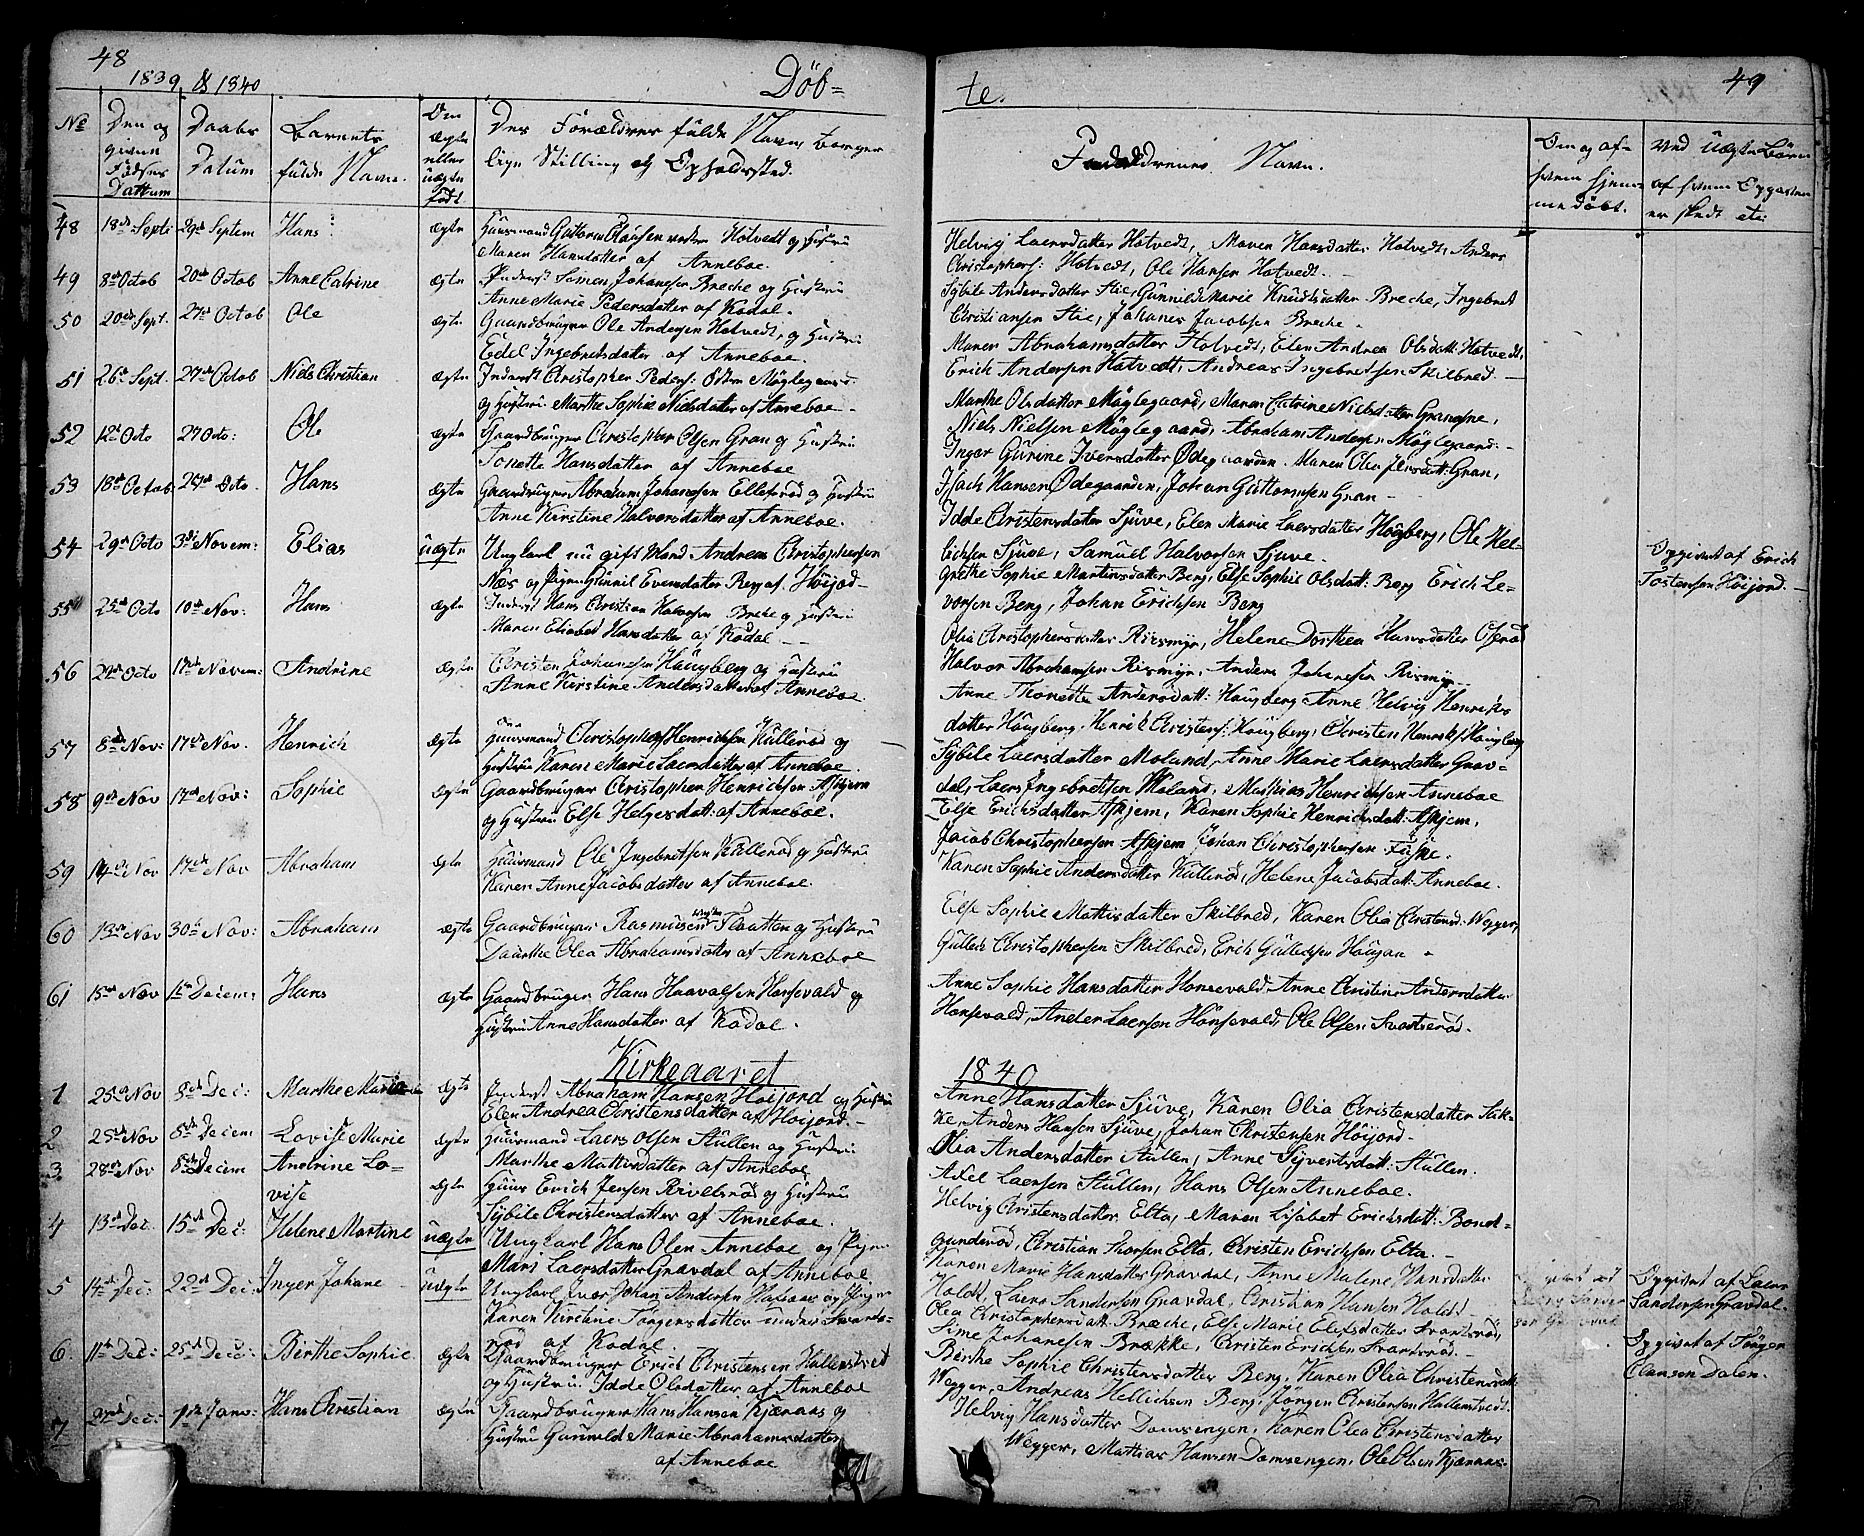 48
1839 & 1840
Döb=
No
Den og
given
Födsels
Dattum
Daabs
Datum
Barnets
fulde Navn.
Om
ægte
eller
uægte
födt
Des Forældres fulde Navn, borger
lige Stilling og Opholdssted.
48 18de Septr 29de Septem Hans ægte Huusmand Guttorm Clausen Hotvedt og Hustru
Maren Hansdatter af Anneboe.
49 8de Octob 20de Octob Anne Catrine ægte Inderst Simen Johansen Breche og Hustru
Anne Marie Pedersdatter af Kodal.
50 20de Sept. 27de Octob Ole ægte Gaardbruger Ole Andersen Hotvedt, og Hustru
Edel Ingebretsdatter af Anneboe.
51 26de Sept. 27de Octob Niels Christian ægte Inderst Christopher Peders: Östre Möglegaard
og Hustru Marthe Sophie Nielsdatter af Anneboe
52 12de Octo 27 Octo: Ole ægte Gaardbruger Christopher Olsen Gran og Hustru
Tonette Hansdatter af Anneboe
53 18de Octob 27de Octo. Hans ægte Gaardbruger Abraham Johansen Ellefsröd og Hustru
Anne Kirstine Halvorsdatter af Anneboe.
54 29de Octo 3de Novem: Elias uægte Ungkarl nu gift Mand Andreas Christophersen
Næs og Pigen Gunnil Evensdatter af Höijord
55 25de Octo 10de Nov: Hans ægte Inderst Hans Christian Halvorsen Breche og Hustru
Maren Elisabed Hansdatter af Kodal
56 29de Octo 17de Novem: Andrine ægte Christen Johansen Haugberg og Hustru
Anne Kirstine Andersdatter af Anneboe.
57 8de Nov: 17de Nov. Henrich ægte Huusmand Christopher Henrichsen Kulleröd og
Hustru Karen Marie Laersdatter af Anneboe
58 9de Nov 17de Nov: Sophie ægte Gaardbruger Christopher Henrichsen Askjem
og Hustru Else Helgesdatt: af Anneboe.
59 14de Nov 17de Nov Abraham ægte Huusmand Ole Ingebretsen Kulleröd og Hustru
Karen Anne Jacobsdatter af Anneboe.
60 13de Nov 30de Nov: Abraham ægte Gaardbruger Rasmus Flaatten og Hustru
Daarthe Olea Abrahamsdatter af Anneboe
61 15de Nov 1te Decem: Hans ægte Gaardbruger Hans Haavalsen Hansevald og
Hustru Anne Hansdatter af Kodal.
Kirkeaaret
1 25de Nov 8de Dec: Marthe Maria ægte Inderst Abraham Hansen Höijord og Hustru
Elen Andrea Christensdatter af Höijord.
2 25de Nov 8de Decem Lovise Marie ægte Huusmand Laers Olsen Stullen og Hustru
Marthe Mathisdatter af Anneboe
3 28de Nov 8de Decem Andrine Lo-
vise ægte Huus Erich Jensen Rivelsröd og Hustru
Sybile Christensdatter af Anneboe.
4 13de Dec. 15de Dec: Helene Martine uægte Ungkarl Hans Olen Anneboe og Pigen
Mari Laersdatter Gravdal af Anneboe
5 14de Dec: 22de Dec: Inger Johane uægte Ungkarl Iver Johan Andersen og Pigen
Karen Kirstine Jörgensdatter under Svarts-
röd af Kodal
6 11te Dec: 25de Dec: Birthe Sophie ægte Gaardbruger Erich Christensen Hallenstvet
og Hustru Idde Olsdatter af Anneboe
7 27de Dec: 1te Janv: Hans Christian ægte Gaardbruger Hans Hansen Kjæraas og
Hustru Gunnild Marie Abrahamsdatter
af Anneboe
49
te.
Faddrenes Navn.
Om og af
hvem hjem-
medöbt.
Ved Uægte Börn
af hvem Opgaven
er skedt etc:
Helvig Laersdatter Hotvedt, Maren Hansdatter Hotvedt, Anders
Christophers: Hotvedt, Ole Hansen Hotvedt.
Sybile Andersdatter Stie, Gunnild Marie Knudsdatter Breche, Ingebret
Christiansen Stie, Johanes Jacobsen Breche.
Maren Abrahamsdatter Hotvedt, Elen Andrea Olsdatt: Hotvedt,
Erich Andersen Hotvedt, Andreas Ingebretsen Skilbred.
Marthe Olsdatter Möglegaard, Maren Catrine Nielsdatter Grangne,
Niels Nielsen Möglegaard, Abraham Andersen Möglegaard.
Inger Gurine Iversdatter Ödegaarden. Maren Olea Gran,
Isach Hansen Ödegaarden, Johan Guttormsen Gran
Idde Christensdatter Sjuve, Elen Marie Laersdatter Högberg, Ole Hel-
lichsen Sjuve, Samuel Halvorsen Sjuve
Grethe Sophie Martinsdatter Berg, Else Sophie Olsdatt: Berg Erich Le-
vorsen Berg, Johan Erichsen Berg
Opgivet af Erich
Tostensen Höijord.
Olea Christophersdatter Riismyr, Helene Dorthea Hansdatter
Halvor Abrahamsen Riismyr, Anders Johansen Riismyr
Anne Thonette Andersdatt: Haugberg Anne Helvig Henriks
datter Haugberg, Henrik Christens: Haugberg, Christen Henriks: Haugberg
Sybile Laersdatter Moland, Anne Marie Laersdatter Grav-
dal, Laers Ingebretsen Moland, Mathias Henrichsen Anneboe
Else Erichsdatter Askjem, Karen Sophie Henrichsdatt: Askjem,
Jacob Christophersen Askjem Johan Christophersen Fuske.
Karen Sophie Andersdatter Kulleröd, Helene Jacobsdatt: Anneboe.
Else Sophie Mathisdatter Skilbred, Karen Olia Christensd: Wegger,
Gullich Christophersen Skilbred, Erich Gullichsen Haugan
Anne Sophie Hansdatter Honsevald, Anne Christine Andersdatter
Honsevald, Anders Laersen Honsevald, Ole Olsen Svartsröd.
1840
Anne Hansdatter Sjuve, Karen Olia Christensdatter Stik-
ke, Anders Hansen Sjuve, Johan Christensen Höijord
Olia Andersdatter Stullen, Anne Syvertsdatt: Stullen.
Axel Laersen Stullen, Hans Olsen Anneboe.
Helvig Christensdatter Elta, Maren Lisabet Erichsdatt: Bond-
gunderöd, Christian Thorsen Elta, Christen Erichsen Elta.
Karen Marie Hansdatter Gravdal, Anne Malene Hansdatter
Holdt, Laers Sandersen Gravdal, Christian Hansen Holdt
Opgivet af Laers
Sandersen Gravdal.
Olea Christophersdatt: Breche, Else Marie Elefsdatter Svartsröd,
Sime Johansen Brække, Christen Erichsen Svartsröd.
Opgivet af Jörgen
Clausen Dalen.
Birthe Sophie Christensdatter Berg, Karen Olia Christensdatt
Wegger, Andreas Hellichsen Berg, Jörgen Christensen Hallenstvedt.
Helvig Hansdatter Domsengen, Karen Olea Christensdatter
Wegger, Mathias Hansen Domsengen, Ole Olsen Kjæraas.